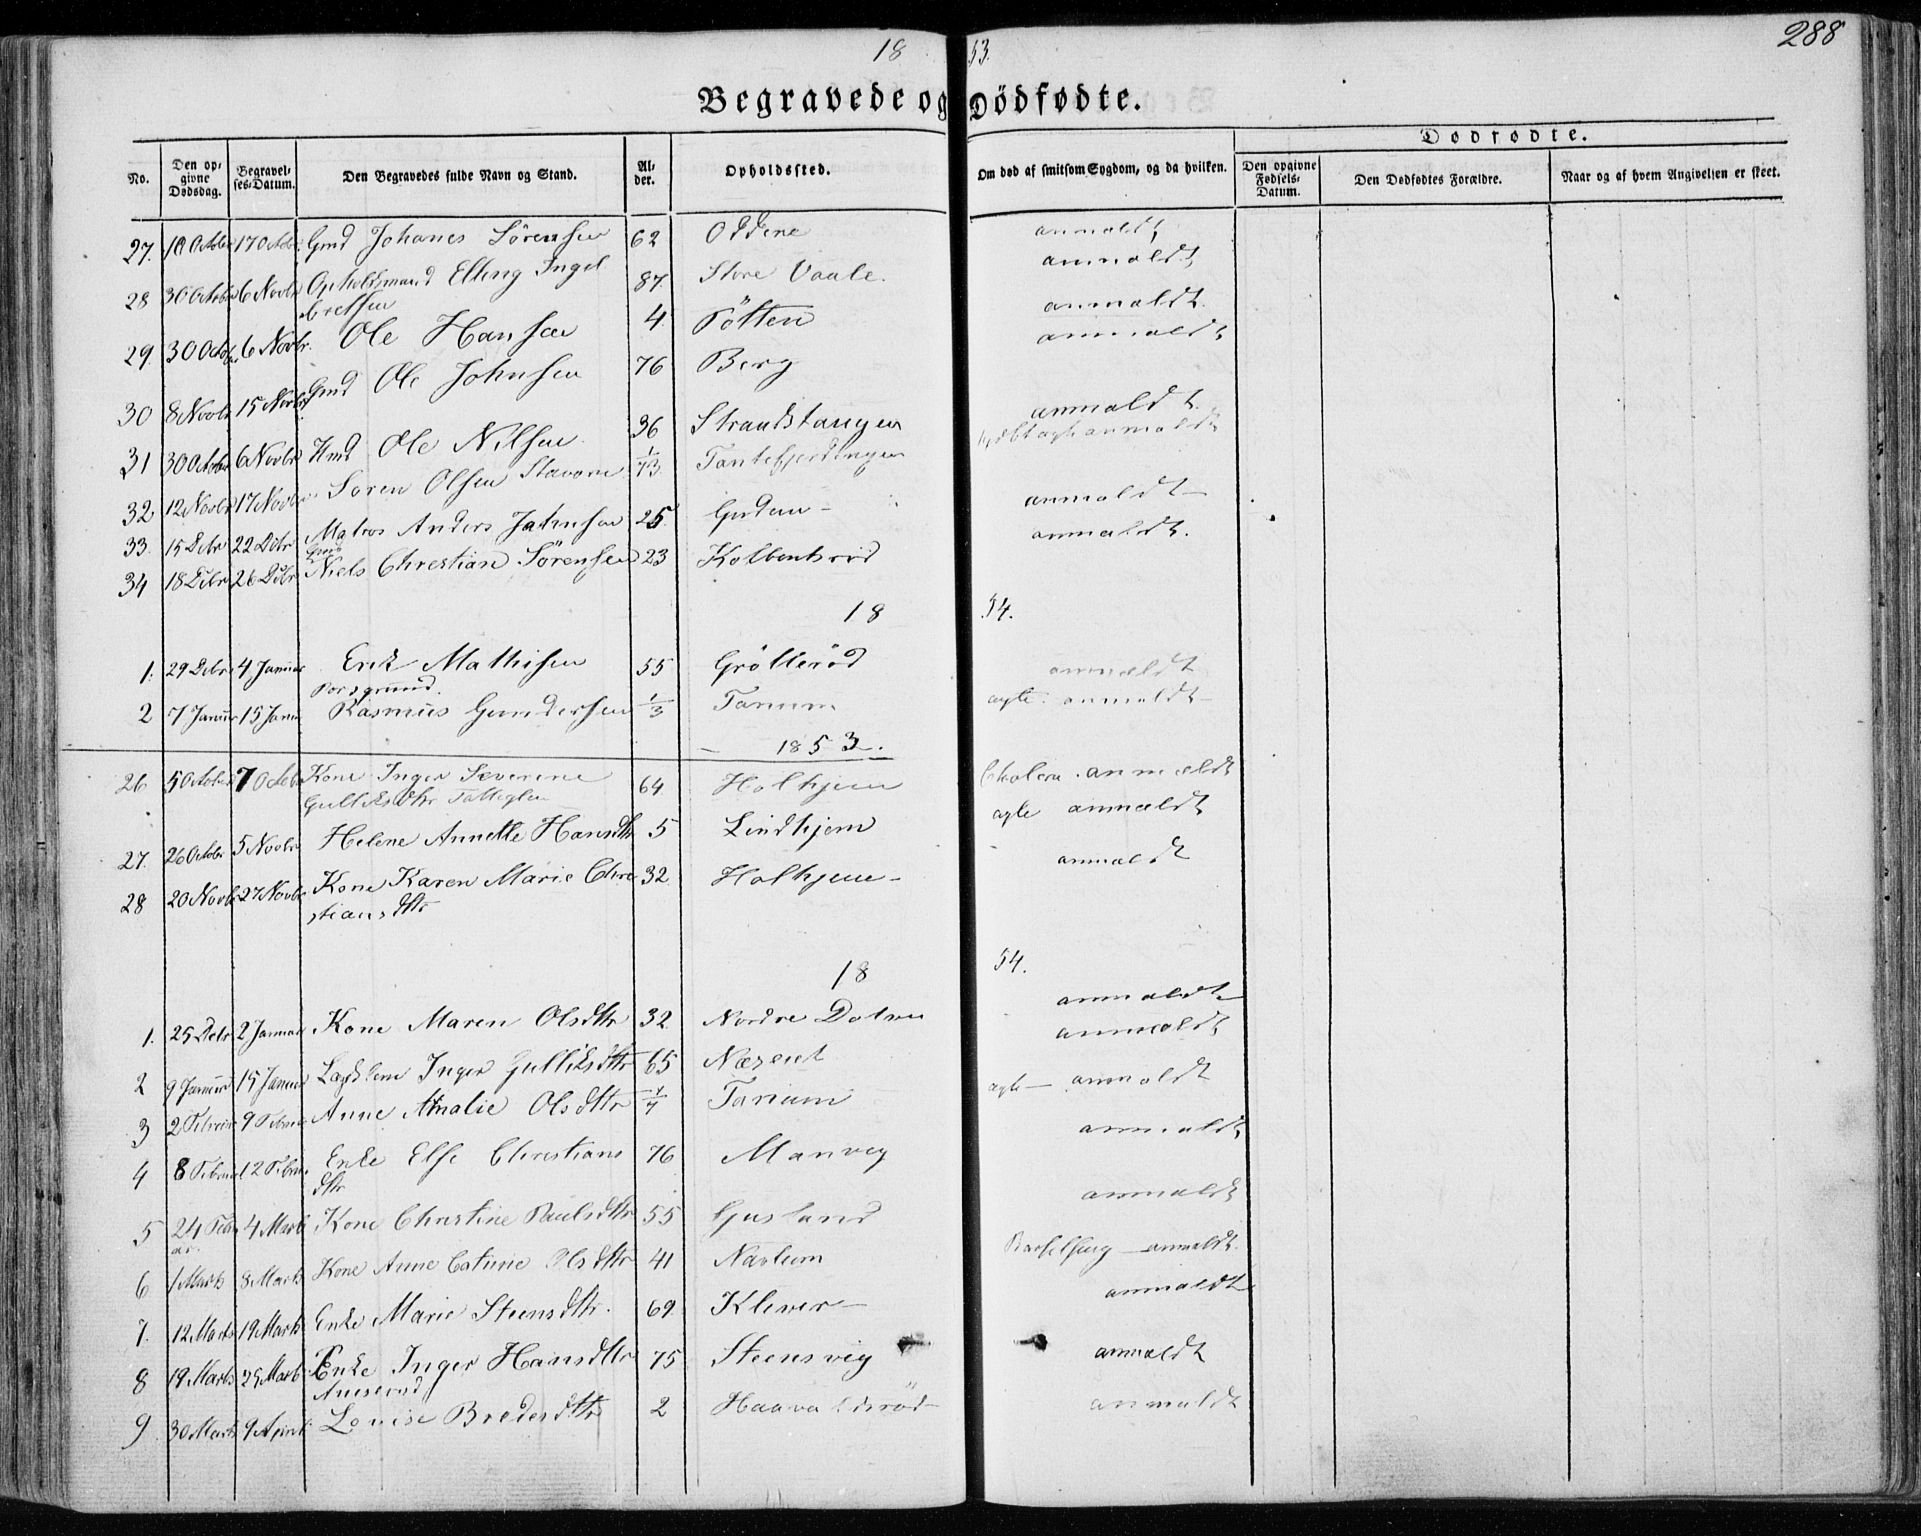 288
18 53.
Begravede og Dödfødte.
Dødfødte.
No. Den opgivne Dødsdag. Begravelses-Datum. Den Begravedes fulde Navn og Stand. Alder. Opholdssted. Om død af smitsom Sygdom, og da hvilken. Den opgivne Fødsels-Datum. Den Dødfødtes Forældre. Naar og af hvem Angivelsen er skeet.
27. 10 October 17 Octbr. Gmd Johanes Sörensen 62 Oddene anmeldt
28 30 October 6 Novbr Opholdsmand Elling Ingel
bretsen 87. Store Vaale. anmeldt
29. 30 October 6 Novbr. Ole Hansen 4. Tötten anmeldt.
30 8 Novbr 15 Novbr Gmd Ole Johnsen 76 Berg anmeldt
31 30 October 6 Novbr Hmd Ole Nilsen 36 Strandstangen anmeldt.
32 12 Novbr 17 Novbr Soren Olsen Stavern 1/73 Tantefjerdingen anmeldt
33. 15 Dcbr 22 Dcbr Matros Anders Jahnsen 25 anmeldt
34 18 Dcbr 26 Dcbr Gmd
Niels Christian Sörensen 23 anmeldt.
18 54.
1. 29 Dcbr 4 Januar Erik Mathisen 55 Grötteröd anmeldt
2 7 Januar 15 Januar Porsgrund.
Rasmus Gundersen 1/3 Tanum ægte. anmeldt
1853.
26 5 October 7 Octbr Kone Inger Severine
Gulliksdtr 64 Holhjem Cholera. anmeldt
27. 26 Octobr 5 Novbr Helene Annette Hansdtr 5 Lindhjem ægte anmeldt
28 20 Novbr 27 Novbr Kone Karen Marie Chri
stiansdtr 32 Holhjem anmeldt
18 54.
1. 25 Dcbr 2 Januar Kone Maren Olsdtr 32 Nordre Dolven anmeldt
2 9 Januar 15 Januar Inger Gulliksdtr 65 anmeldt
3 2 Februar 9 Februar Anne Amalie Olsdtr 1/7 Tanum ægte anmeldt
4 8 Februar 12 Februar Enke Else Christians
dtr 76 Manvig anmeldt
5 24 Febru
ar. 4 Marts Kone Christine Paulsdtr 55 Gusland anmeldt
6 1 Marts 8 Marts Kone Anne Catrine Olsdtr 41 Navlum Barselseng anmeldt.
7. 12 Marts 19 Marts Enke Marie Steensdtr. 69. Klever anmeldt
8 19 Marts 25 Marts Enke Inger Hansdtr 75 Steensvig anmeldt
9 30 Marts 9 April Louise Bredesdtr 2 Haavaldsröd anmeldt